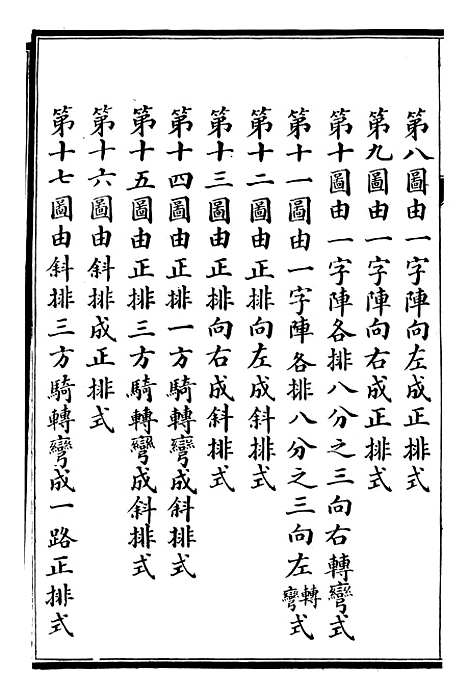 第八圖由一字陣向左成正排式
第九圖由一字陣向右成正排式
第十圖由一字陣各排八分之三向右轉彎式
第十一圖由一字陣各排八分之三向左轉彎式
第十二圖由正排向左成斜排式
第十三圖由正排向右成斜排式
第十四圖由正排一方騎轉彎成斜排式
第十五圖由正排三方騎轉彎成斜排式
第十六圖由斜排成正排式
第十七圖由斜排三方騎轉彎成一路正排式